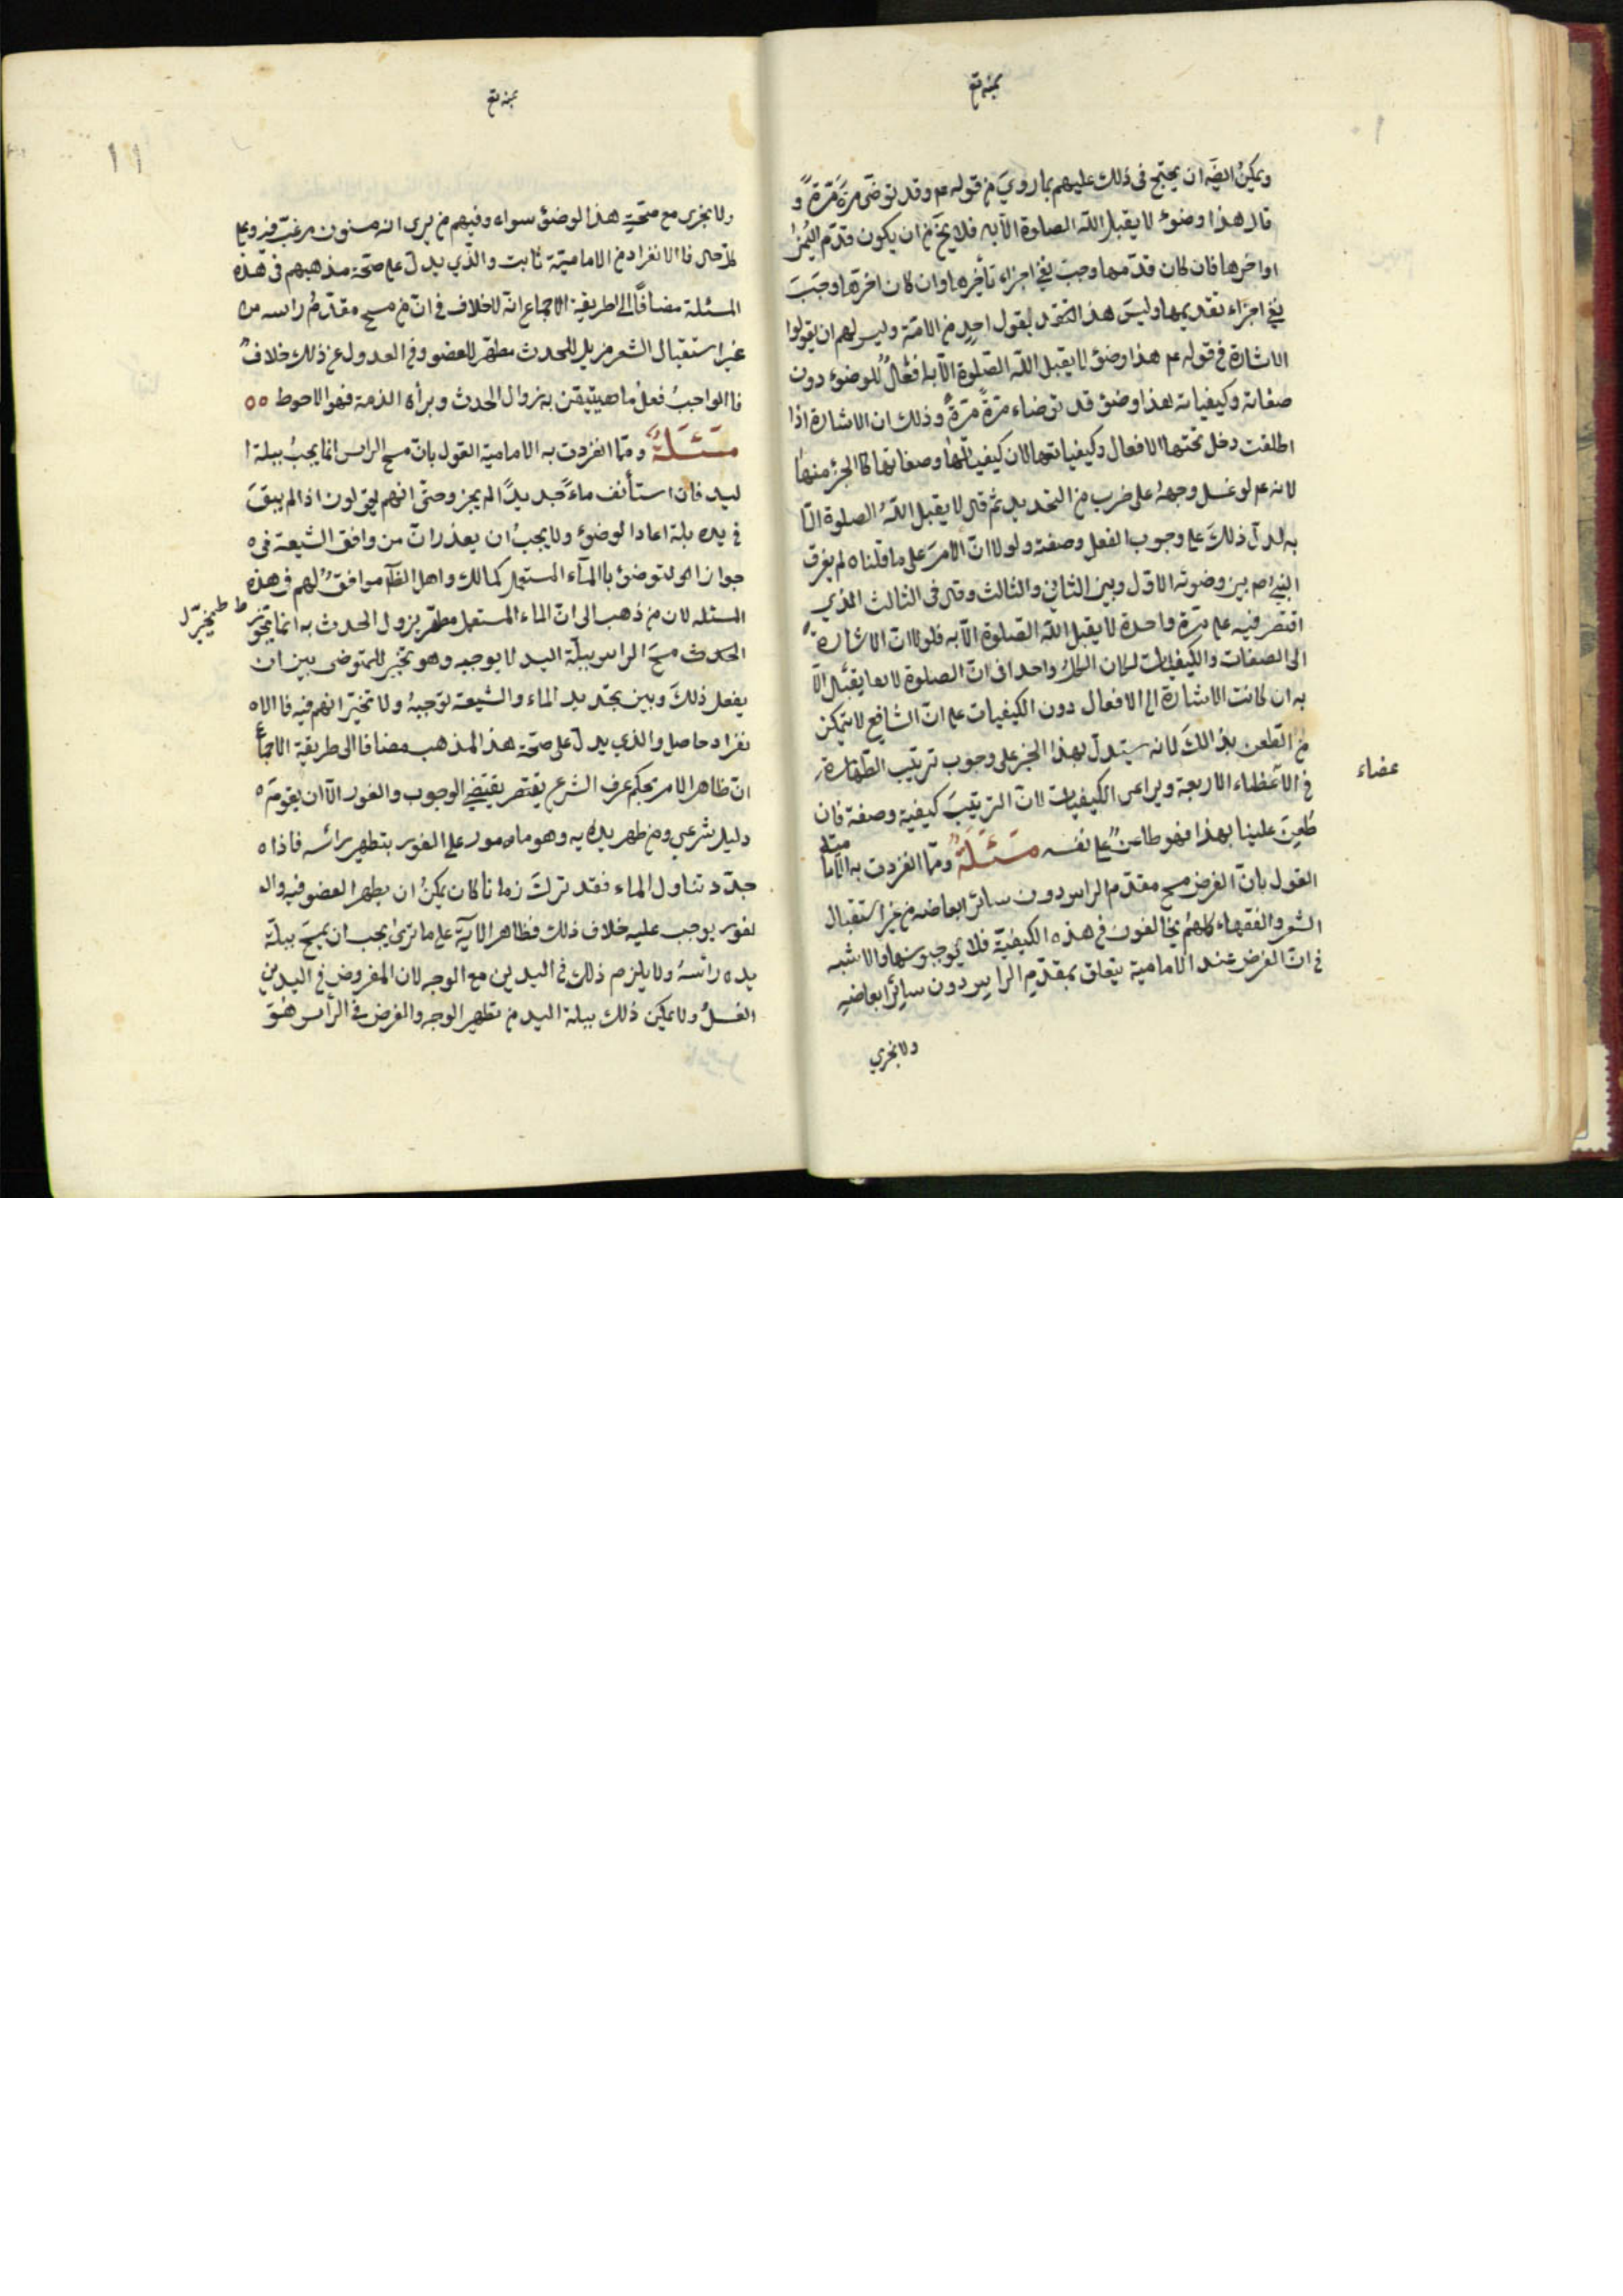 ويمكن ايضا ان يحتج فى ذلك عليهم بما روي من قوله عم وقد توضى مرة مرة و
قال هذا وضوء لا يقبل الله الصلوة الا به فلا يخ من ان يكون قدم اليمنى
او اخرها فان كان قدمها وجب نفى اجزاء تأخيرها وان كان اخرها وجبت
نفى اجزاء تقديمها وليس هذا بقول احد من الامة وليس لهم ان يقولوا
الاشارة فى قوله عم هذا وضوء لا يقبل الله الصلوة الا به افعال للوضوء دون
صفاته وكيفياته لهذا وضوء قد توضاء مرة مرة وذلك ان الاشارة اذا
اطلقت دخل تحتها الافعال وكيفياتها لان كيفياتها وصفاتها كالجزء منها
لانه عم لو غسل وجهه على ضرب من التحديد ثم قال لا يقبل الله الصلوة الا
به لدل ذلك على وجوب الفعل وصفته ولولا ان الامر على ما قلناه لم يفرق
النبي ص بين وضوئه الاول وبين الثاني والثالث وقال فى الثالث الذي
اقتصر فيه على مرة واحدة لا يقبل الله الصلوة الا به فلولا ان الاشارة
الى الصفات والكيفيات لكان الكل واحدا فى ان الصلوة لا يقبل الا
به ان كانت الاشارة الى الافعال دون الكيفيات على ان الشافعي لا يتمكن
من الطعن بذالك لانه يستدل بهذا الخبر على وجوب ترتيب الطهارة
فى الاعظاء الاربعة ويراعى الكيفيات لان الترتيب كيفية وصفة فان
عضاء
طعن علينا بهذا فهو طاعن على نفسه مسئلة ومما انفردت به الاما
مية
القول بان الفرض مسح مقدم الراس دون سائر ابعاضه من غير استقبال
الشعر والفقهاء كلهم يخالفون فى هذه الكيفية فلا يوجبونها ولا شبهة
فى ان الفرض عند الامامية يتعلق بمقدم الراس دون سائر ابعاضه
ولا يجزي
١١
ولا يجزى مع صحته هذا الوضوء سواء وفيهم من يرى انه مسنون مرغب فيه وعلى
فالانفراد من الامامية ثابت والذي يدل على صحة مذهبهم فى هذه
المسئلة مضافا الى طريقة الاجماع انه لا خلاف فى ان من مسح مقدم راسه من
غير استقبال الشعر مزيل للحدث مطهر للعضو وفى العدول عن ذلك خلاف
فالواجب فعل ما هيتيقن به زوال الحدث وبرأه الذمة فهو الاحوط ٥٥
مسئلة ومما انفردت به الامامية القول بان مسح الراس انما يجب ببلة ا
ليد فان استأنف ماء جديدا لم يجز وحتى انهم يقولون اذا لم يبق
فى يده بلة اعاد الوضوء ولا يجب ان يعذر ان من وافق الشيعة فى ه
جواز التوضوء بالماء المستعمل كمالك واهل الظاهر موافق لهم فى هذه
المسئله لان من ذهب الى ان الماء المستعمل مطهر يزول الحدث به انما تجوز
الحدث مسح الراس ببلة اليد لا يوجبه وهو تخير للمتوضى بين ان
يفعل ذلك وبين تجديد الماء والشيعة توجبه ولا تخير انهم فيه فالا ه
نفراد حاصل والذي يدل على صحة هذا المذهب مضافا الى طريقة الاجماع
ان ظاهر الامر بحكم عرف الشرع يقتضى الوجوب والفور الا ان يقوم ه
دليل شرعي ومن طهر يديه وهو مامور على الفور بتطهير رائسه فاذا ه
جدد تناول الماء فقد ترك زمانا كان يمكن ان يطهر العضو فيه وال
لفور يوجب عليه خلاف ذلك فظاهر الآية على ما ترى يجب ان يمسح ببلة
يده رائسه ولا يلزم ذلك فى اليدين مع الوجه لان المفروض فى اليدين
الغسل ولا يمكن ذلك ببلة اليد من تطهير الوجه والفرض فى الراس هو